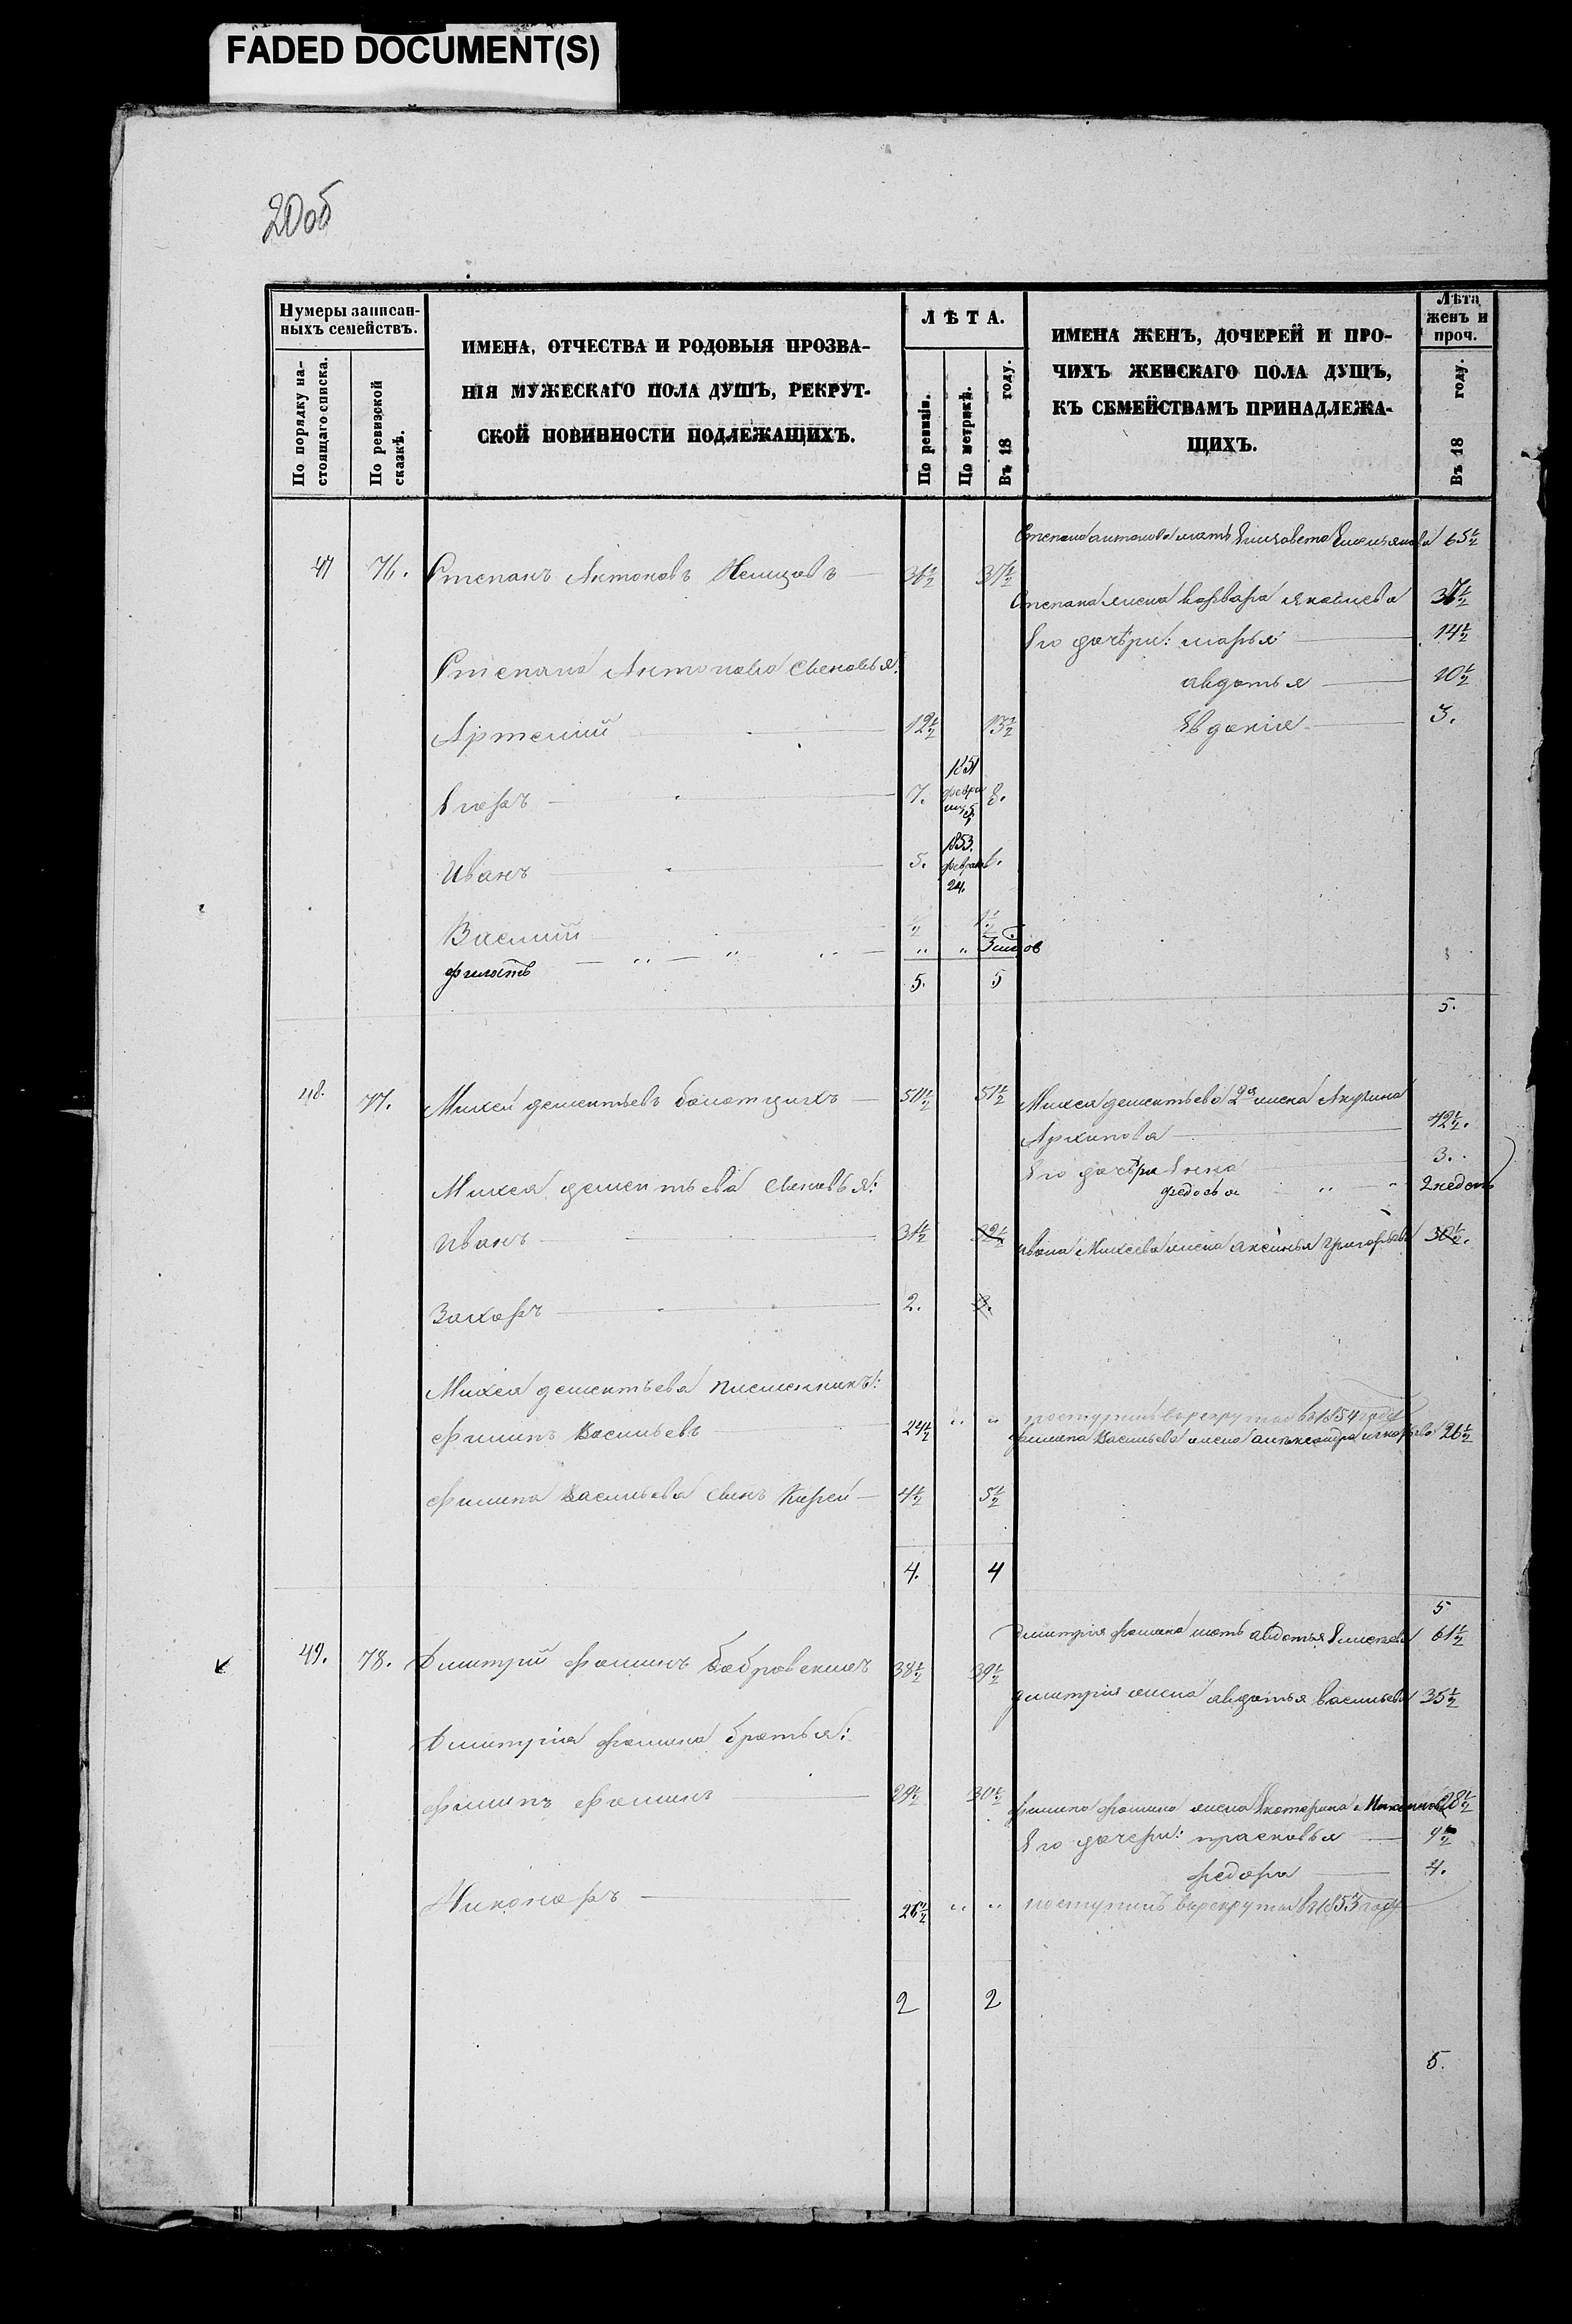 FADED DOCUMENT(S)
20об
Нумеры записан-
ныхъ семействъ.
По порядку на-
стоящаго списка.
По ревизской
сказкѣ.
ИМЕНА, ОТЧЕСТВА И РОДОВЫЯ ПРОЗВА-
НІЯ МУЖЕСКАГО ПОЛА ДУШЪ, РЕКРУТ-
СКОЙ ПОВИННОСТИ ПОДЛЕЖАЩИХЪ.
ЛѢТА.
По ревизіи.
По метрикѣ.
Въ 18 году.
ИМЕНА ЖЕНЪ, ДОЧЕРЕЙ И ПРО-
ЧИХЪ ЖЕНСКАГО ПОЛА ДУШЪ,
КЪ СЕМЕЙСТВАМЪ ПРИНАДЛЕЖА-
ЩИХЪ.
Лѣта
женъ и
проч.
Въ 18 году.
Степана антонова мать Елизавета 65½
47 76. Степанъ Антоновъ 36½ 37½
Степана жена варвара 37½
Его дочѣри: марья 14½
Степана Антонова сыновья:
авдотья 10½
Артемий 12½ 13½
Евдокия 3.
Егоръ 7. 1851 февра 5 8.
Иванъ 5. 1853. февраля 24. 6.
Василий ½ 1½
филатъ " " " " " 3
5. 5
5.
48. 77. Михей дементьевъ 50½ 51½
Михея дементьева 2я жена Акулина
Архипова 42½.
Его дочѣри Анна 3.
федосья " " 2 недель
Михея дементьева сыновья:
Иванъ 31½ 32½
ивана Михеева жена аксинья григорьева 30½.
Захаръ 2. 3.
Михея дементьева племянникъ:
филипъ Васильевъ 24½ " "
поступилъ в рекруты в 1854 году
филипа Васильева жена александра 26½
филипа васильева сынъ Кирей 4½ 5½
4. 4
5
димитрия фомина мать авдотья 61½
49. 78. Димитрий фоминъ Бобровскихъ 38½ 39½
димитрия жена авдотья васильева 35½
Димитриа фомина братья:
филипъ фоминъ 29½ 30½
филипа фомина жена Екатерина 28½
Его дочери: прасковья 9½
федора 4.
Никоноръ 26½ " "
поступилъ в рекруты в 1853 году
2 2
5.